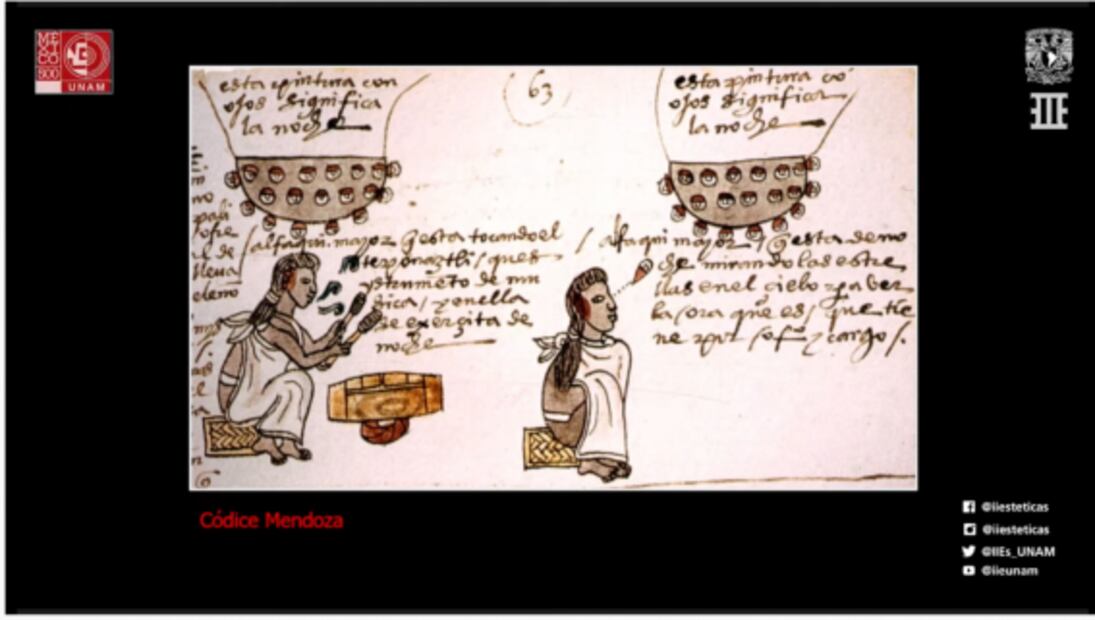 MÉ
XI
CO
500
UNAM
esta pintura con
ojos significa
la noche
63
esta pintura co
ojos significa
la noche
alfaqui mayor q esta tocando el
teponaztli / ques
ynstrumēto de mu
sica / y en ella
se exerçita de
noche
alfaqui mayor / q esta de no
che mirando las estre
llas en el cielo pa ver
la ora que es / que tie
ne por ofiº y cargo /.
Códice Mendoza
@iiesteticas
@iiesteticas
@IIEs_UNAM
@iieunam